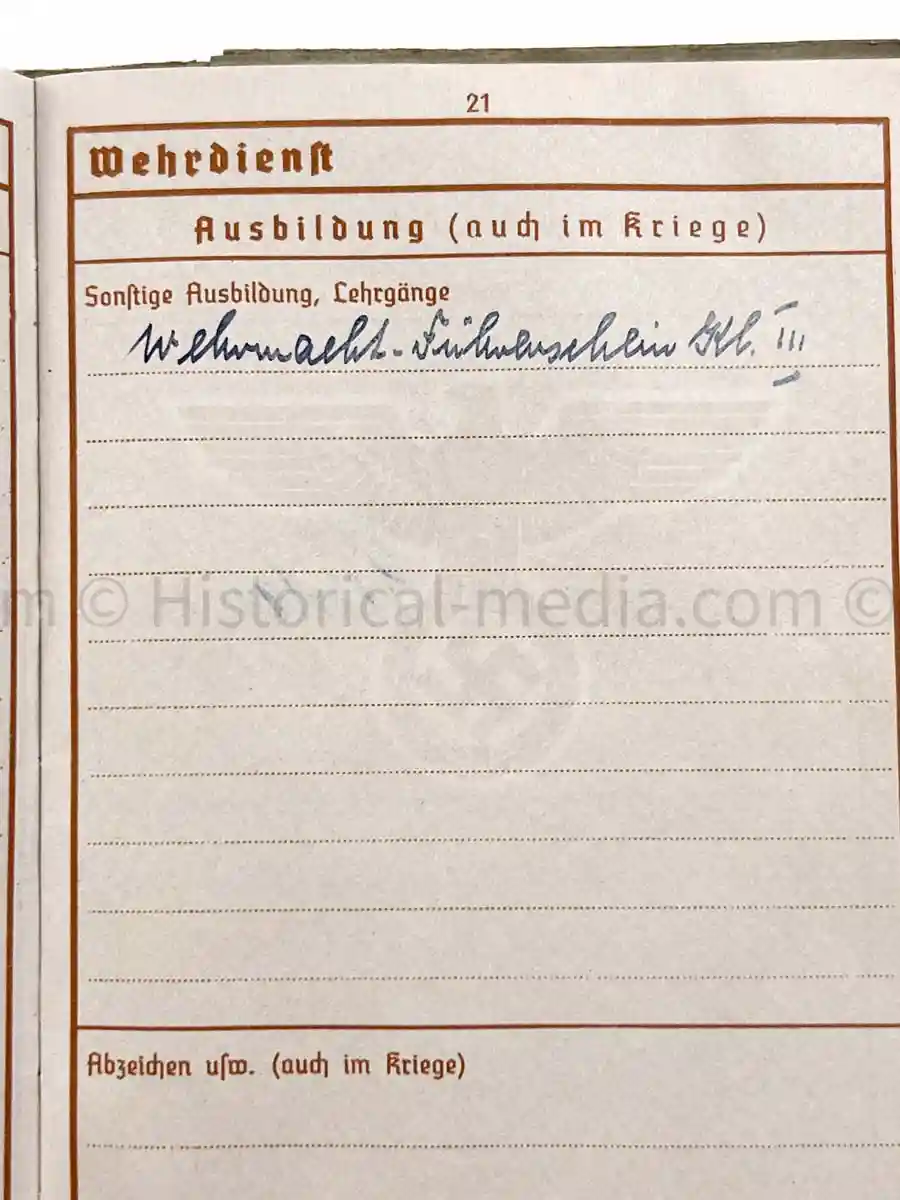 21
Wehrdienst
Ausbildung (auch im Kriege)
Sonstige Ausbildung, Lehrgänge
Wehrmacht-Führerschein Kl. III
m © Historical-media.com ©
Abzeichen usw. (auch im Kriege)